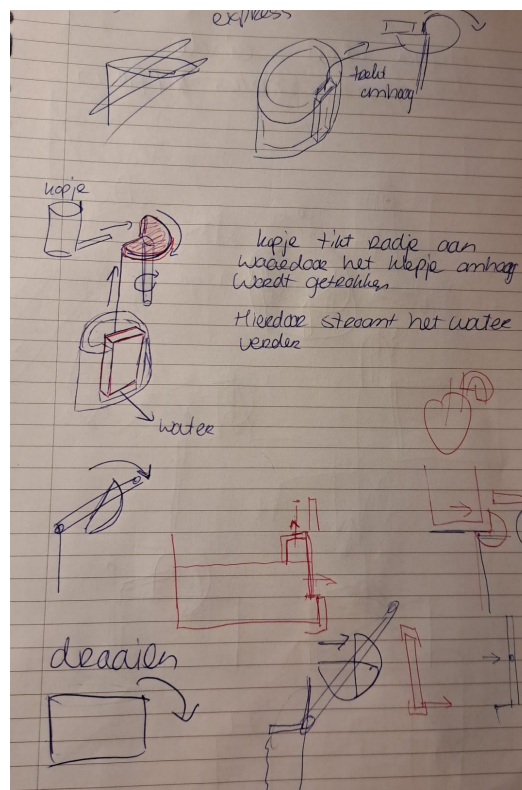 express
trekt
omhoog
kopje
kopje tikt radje aan
waardoor het klepje omhoog
wordt getrokken
Hierdoor stroomt het water
verder
water
draaien